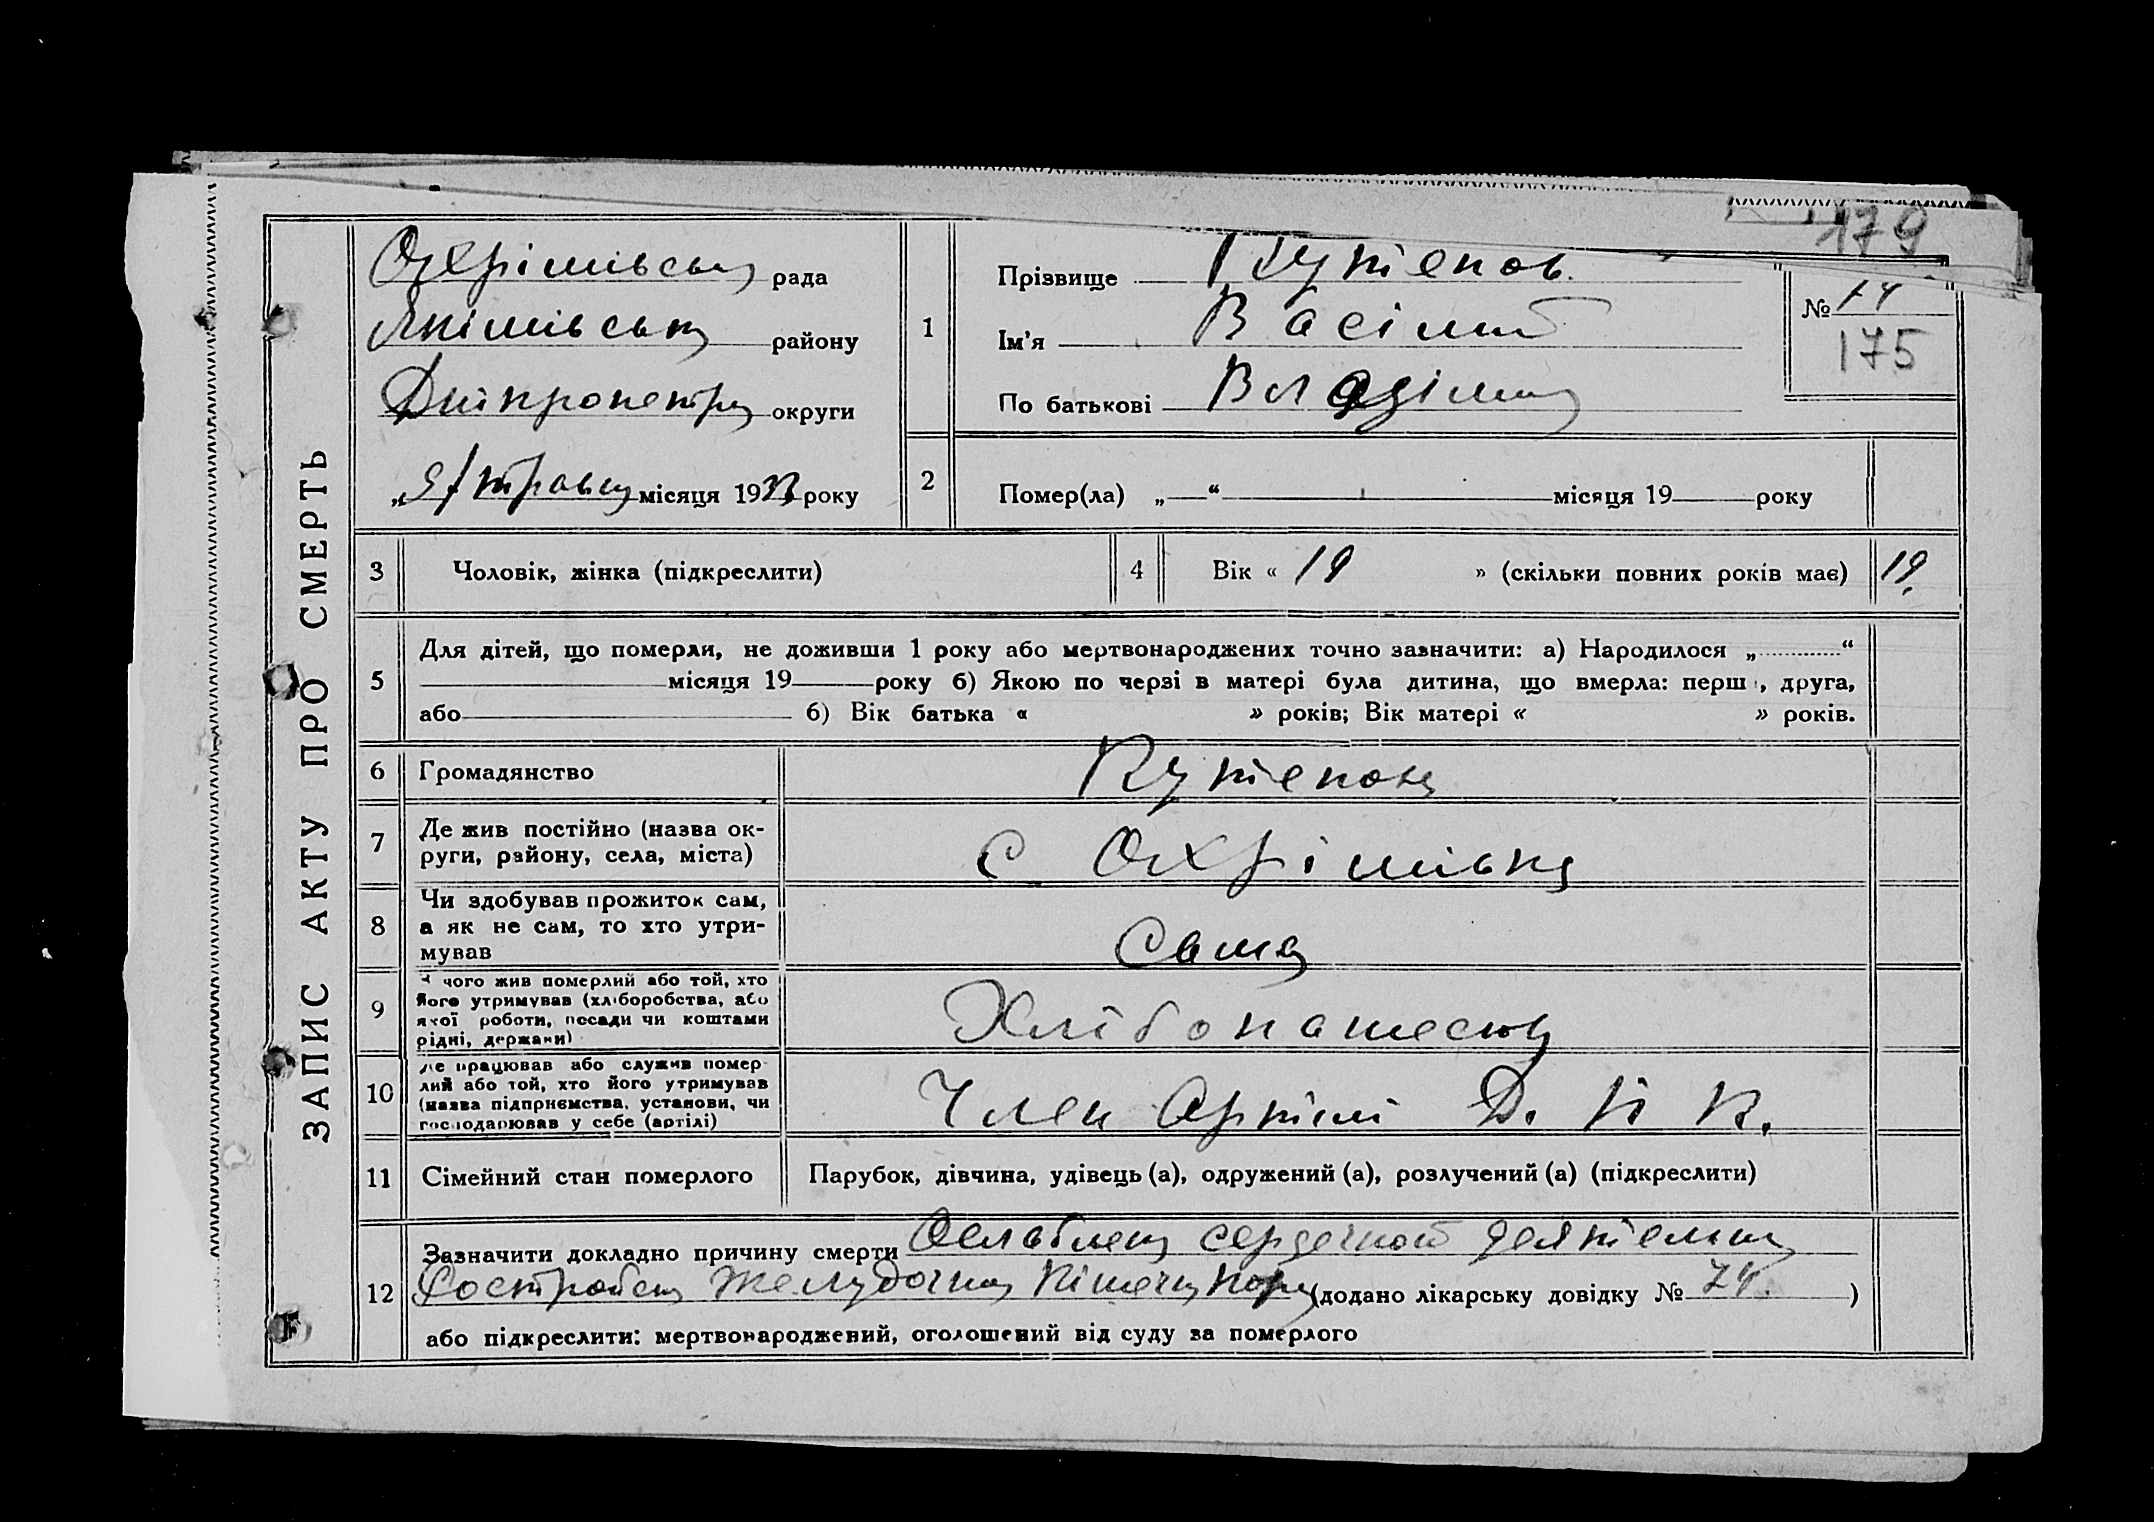 179
Охрімівська рада
Якімівська району
Дніпропетр округи
„ травня місяця 1933 року
ЗАПИС АКТУ ПРО СМЕРТЬ
1
Прізвище Кутепов.
Ім'я Васілий
По батькові Владіми
№ 74
175
2
Помер(ла) „ “ місяця 19 року
3
Чоловік, жінка (підкреслити)
4
Вік « 19 » (скільки повних років має) 19.
5
Для дітей, що померли, не доживши 1 року або мертвонароджених точно зазначити: а) Народилося „ “
місяця 19 року б) Якою по черзі в матері була дитина, що вмерла: перш, друга,
або б) Вік батька « » років; Вік матері « » років.
6
Громадянство
Кутепова
7
Де жив постійно (назва ок-
руги, району, села, міста)
с Охрімівка
8
Чи здобував прожиток сам,
а як не сам, то хто утри-
мував
Сама
9
чого жив померлий або той, хто
його утримував (хліборобства, або
якої роботи, посади чи коштами
рідні, держави)
Хлібопашеська
10
Де працював або служив помер-
лий або той, хто його утримував
(назва підприємства, установи, чи
господарював у себе (артілі)
Член Артілі Д. Н К.
11
Сімейний стан померлого
Парубок, дівчина, удівець (а), одружений (а), розлучений (а) (підкреслити)
12
Зазначити докладно причину смерти Ослаблен сердечной деятельн
желудочна кішечн (додано лікарську довідку № 74. )
або підкреслити: мертвонароджений, оголошений від суду за померлого